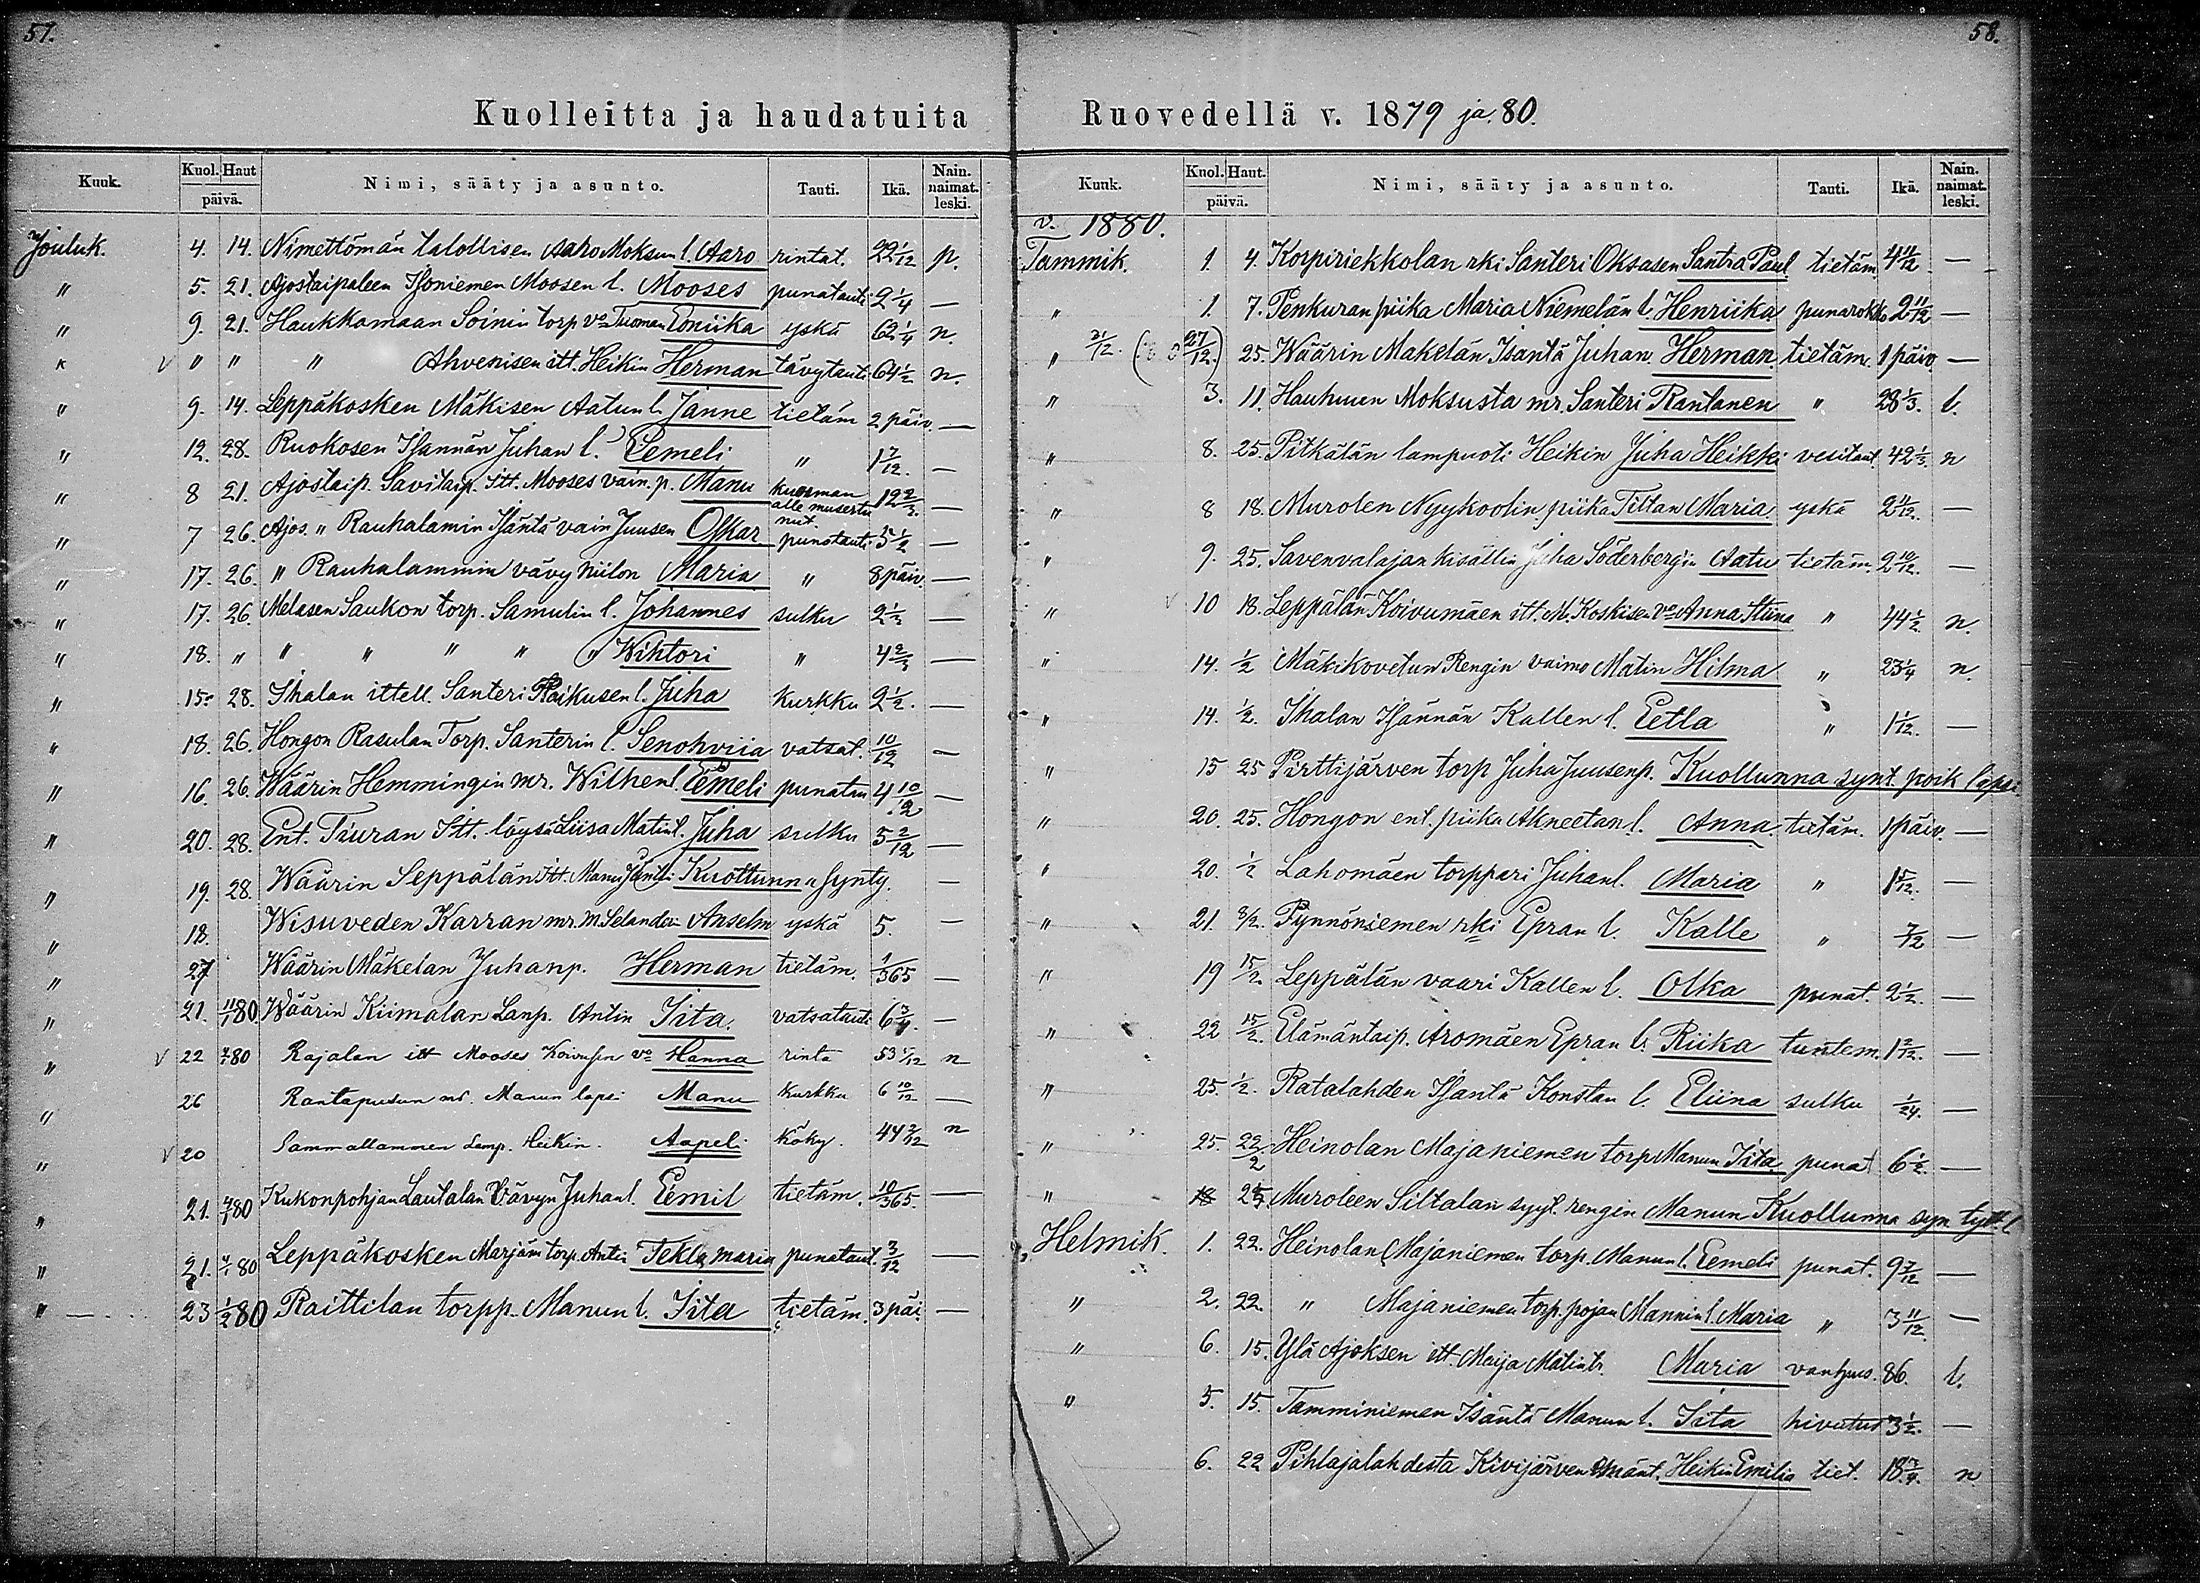 57.
Kuolleitta ja haudatuita
Kuuk. Kuol. Haut päivä. Nimi, sääty ja asunto. Tauti. Ikä. Nain. naimat. leski.
Jouluk. 4. 14. Nimettömän talollisen Aaro Moksun l. Aaro rintat. 22 1/12 p.
" 5. 21. Ajostaipaleen Isoniemen Moosen l. Mooses punatauti 2 1/4 —
" 9. 21. Haukkamaan Soinin torp vo Tuoman Loniika yskä 62 1/4 n.
" " " " Ahvenisen itt. Heikin Herman tävytauti 64 1/2 n.
" 9. 14. Leppäkosken Mäkisen Aatun l. Janne tietäm 2 päiv. —
" 12. 28. Ruokosen Isännän Juhan l. Eemeli " 1 7/12. —
" 8 21. Ajostaip. Savitaip. Itt. Mooses vain. p. Manu kuorman alle musertunut. 19 2/3. —
" 7 26. Ajos. " Rauhalamin Isäntä vain Juusen Oskar punatauti 3 1/2 —
" 17. 26. " Rauhalammin vävy Niilon Maria " 8 päiv. —
" 17. 26. Melasen Saukon torp. Samulin l. Johannes sulku 2 1/2 —
" 18. " " " " " " Wihtori " 4 2/3 —
" 15. 28. Ihalan ittell. Santeri Raikusen l. Juha kurkku 2 1/2. —
" 18. 26. Hongon Rasulan Torp. Santerin l. Senohviia vatsat. 10/12 —
" 16. 26. Wäärin Hemmingin mr. Wilhen l. Eemeli punatau 4 10/12 —
" 20. 28. Ent. Tauran Itt. löysä Liisa Matin l. Juha sulku 5 2/12 —
" 19. 28. Wäärin Seppälän Itt. Manu Kuollunna synty. —
" 18. Wisuveden Karran mr. M. Selanderi Anselm yskä 5. —
" 27 Wäärin Mäkelan Juhan p. Herman tietäm. 1/365 —
" 21. 11/1 80. Wäärin Kiimalan Lanp. Antin Iita. vatsatauti 6 3/4. —
" 22 4/1 80 Rajalan itt Mooses Koivusen vo Hanna rinta 53 7/12 n
" 26 Rantapusun mr. Manun lapsi Manu kurkku 6 10/12 —
" 20 Sammallammen Lamp. Heikin. Aapeli köky. 44 2/12 n
" 21. 4/1 80 Kukonpohjan Lautalan Vävyn Juhan l. Eemil tietäm. 10/365. —
" 21. 4/1 80 Leppäkosken Marjäm torp. Antin Tekla maria punataut. 3/12 —
" 23 1/2 80 Raittilan torpp. Manun l. Iita tietäm. 3 päi. —
58.
Ruovedellä v. 1879 ja 80.
Kuuk. Kuol. Haut. päivä. Nimi, sääty ja asunto. Tauti. Ikä. Nain. naimat. leski.
v. 1880.
Tammik. 1. 4. Korpiriekkolan rki Santeri Oksasen Santra Paul tietäm 4 11/12 —
" 1. 7. Penkuran piika Maria Niemelän l. Henriika punarokko 2 11/12 —
" 31/12. 27/12.) 25. Wäärin Makelän Isäntä Juhan Herman. tietäm. 1 päiv —
" 3. 11. Hauhuun Moksusta mr. Santeri Rantanen " 28 1/3. l.
" 8. 25. Pitkälän lampuoti Heikin Juha Heikki vesitaut 42 1/3. n
" 8 18. Murolen Nyykoolin piika Tiltan Maria. yskä 2 11/12. —
" 9. 25. Savenvalajan kisällin Juha Söderberg'in Aatu tietäm. 2 10/12. —
" 10 18. Leppälän Koivumäen itt. M. Koskisen vo Anna Stiina " 44 1/2. n.
" 14. 1/2 Mäkikovetun Rengin vaimo Matin Hilma " 23 1/4 n.
" 14. 1/2. Ihalan Isännän Kallen l. Eetla " 1 1/12. —
" 15 25 Pirttijärven torp Juha Juusen p. Kuollunna synt. poik lapsi
" 20. 25. Hongon ent. piika Akneetan l. Anna tietäm. 1 päiv. —
" 20. 1/2 Lahomäen torppari Juhan l. Maria " 1 5/12. —
" 21. 8/2. Pynnöniemen rki Epran l. Kalle " 7/12 —
" 19 15/2 Leppälän vaari Kallen l. Olka punat. 2 1/2. —
" 22 15/2. Elämäntaip. Aromäen Epran l. Riika tuntem. 1 2/12. —
" 25. 1/2. Ratalahden Isäntä Konstan l. Eliina sulku 1/24. —
" 25. 22/2 Heinolan Majaniemen torp Manun Iita punat 6 1/2. —
" 18 25. Muroleen Siltalan syyt. rengin Manun Kuollunna syn. tytt. l
Helmik. 1. 22. Heinolan Majaniemen torp. Manun l. Eemeli punat. 9 7/12 —
" 2. 22. " Majaniemen torp. pojan Mannin l. Maria " 3 11/12. —
" 6. 15. Ylä Ajoksen itt. Maija Matintr. Maria vanhuus. 86. l.
" 5. 15. Tamminiemen Isäntä Manun l. Iita hivutus 3 1/2. —
6. 22 Pihlajalahdesta Kivijärven Emänt. Heikin Emilia tiet. 18 3/4. n